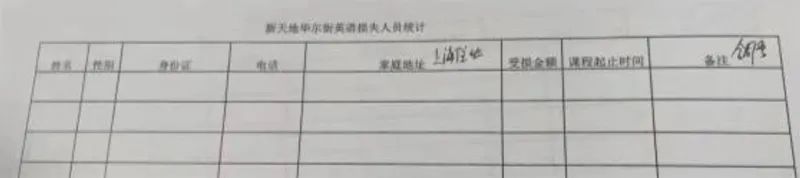 新天地华尔街英语损失人员统计
姓名 性别 身份证 电话 家庭地址 上海住址 受损金额 课程起止时间 备注 合同号